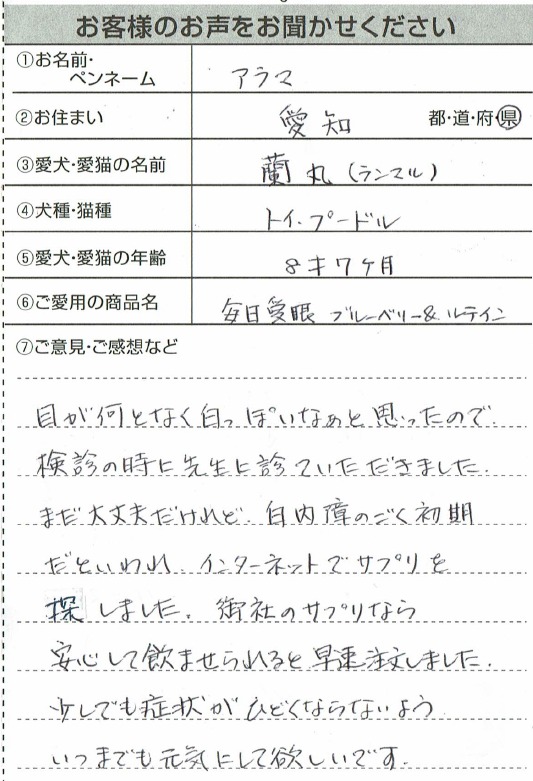 お客様のお声をお聞かせください
①お名前・
ペンネーム
アラマ
②お住まい
愛知 都・道・府・県
③愛犬・愛猫の名前
蘭丸(ランマル)
④犬種・猫種
トイ・プードル
⑤愛犬・愛猫の年齢
8才7ヶ月
⑥ご愛用の商品名
毎日愛眼 ブルーベリー&ルテイン
⑦ご意見・ご感想など
目が何となく白っぽいなぁと思ったので、
検診の時に先生に診ていただきました。
まだ大丈夫だけれど、白内障のごく初期
だといわれ、インターネットでサプリを
探しました。御社のサプリなら
安心して飲ませられると早速注文しました。
少しでも症状がひどくならないよう
いつまでも元気にして欲しいです。